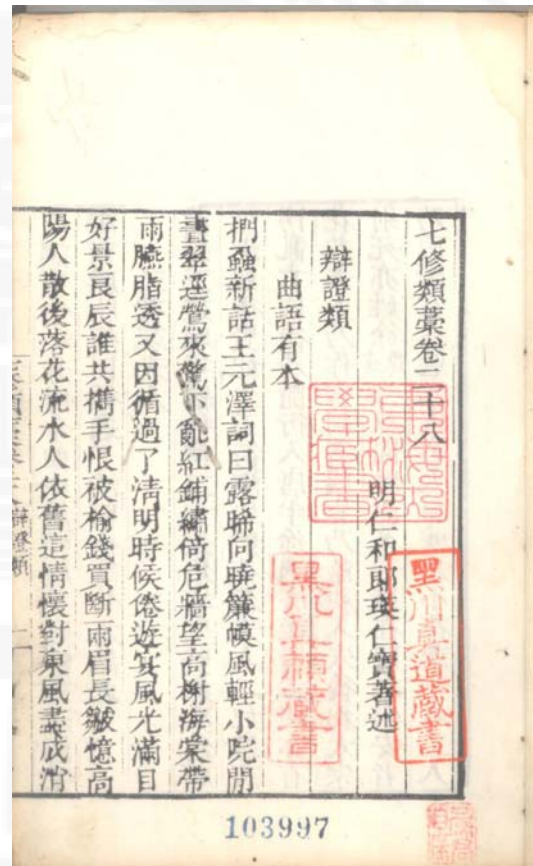 七修類藁卷二十八
明仁和郎瑛仁寶著述
辯證類
曲語有本
捫蝨新話王元澤詞曰露晞向曉簾幙風輕小院閒
晝翠逕鶯來驚下亂紅鋪繡倚危牆望高榭海棠帶
雨臙脂透又因循過了清明時候倦遊宴風光滿目
好景良辰誰共攜手恨被榆錢買斷兩眉長皺憶高
陽人散後落花流水人依舊這情懷對東風盡成消
辯證類
黑川真道藏書
黑川真賴藏書
103997